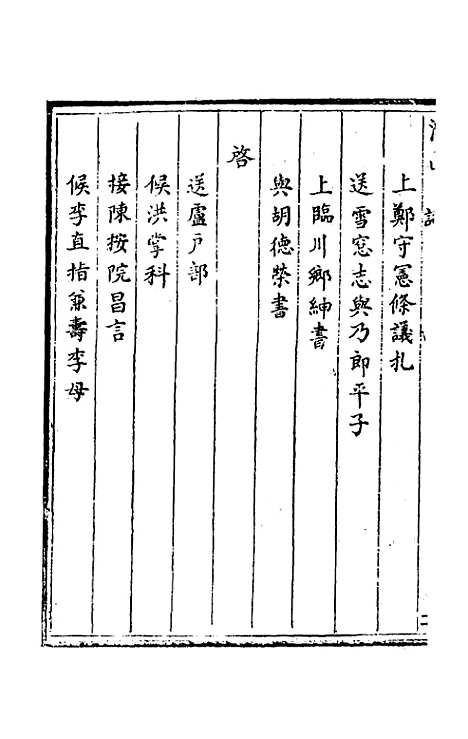 上鄭守憲條議札
送雪窓志與乃郎平子
上臨川鄉紳書
與胡德榮書
啓
送盧戶部
候洪掌科
接陳按院昌言
候李直指兼壽李母